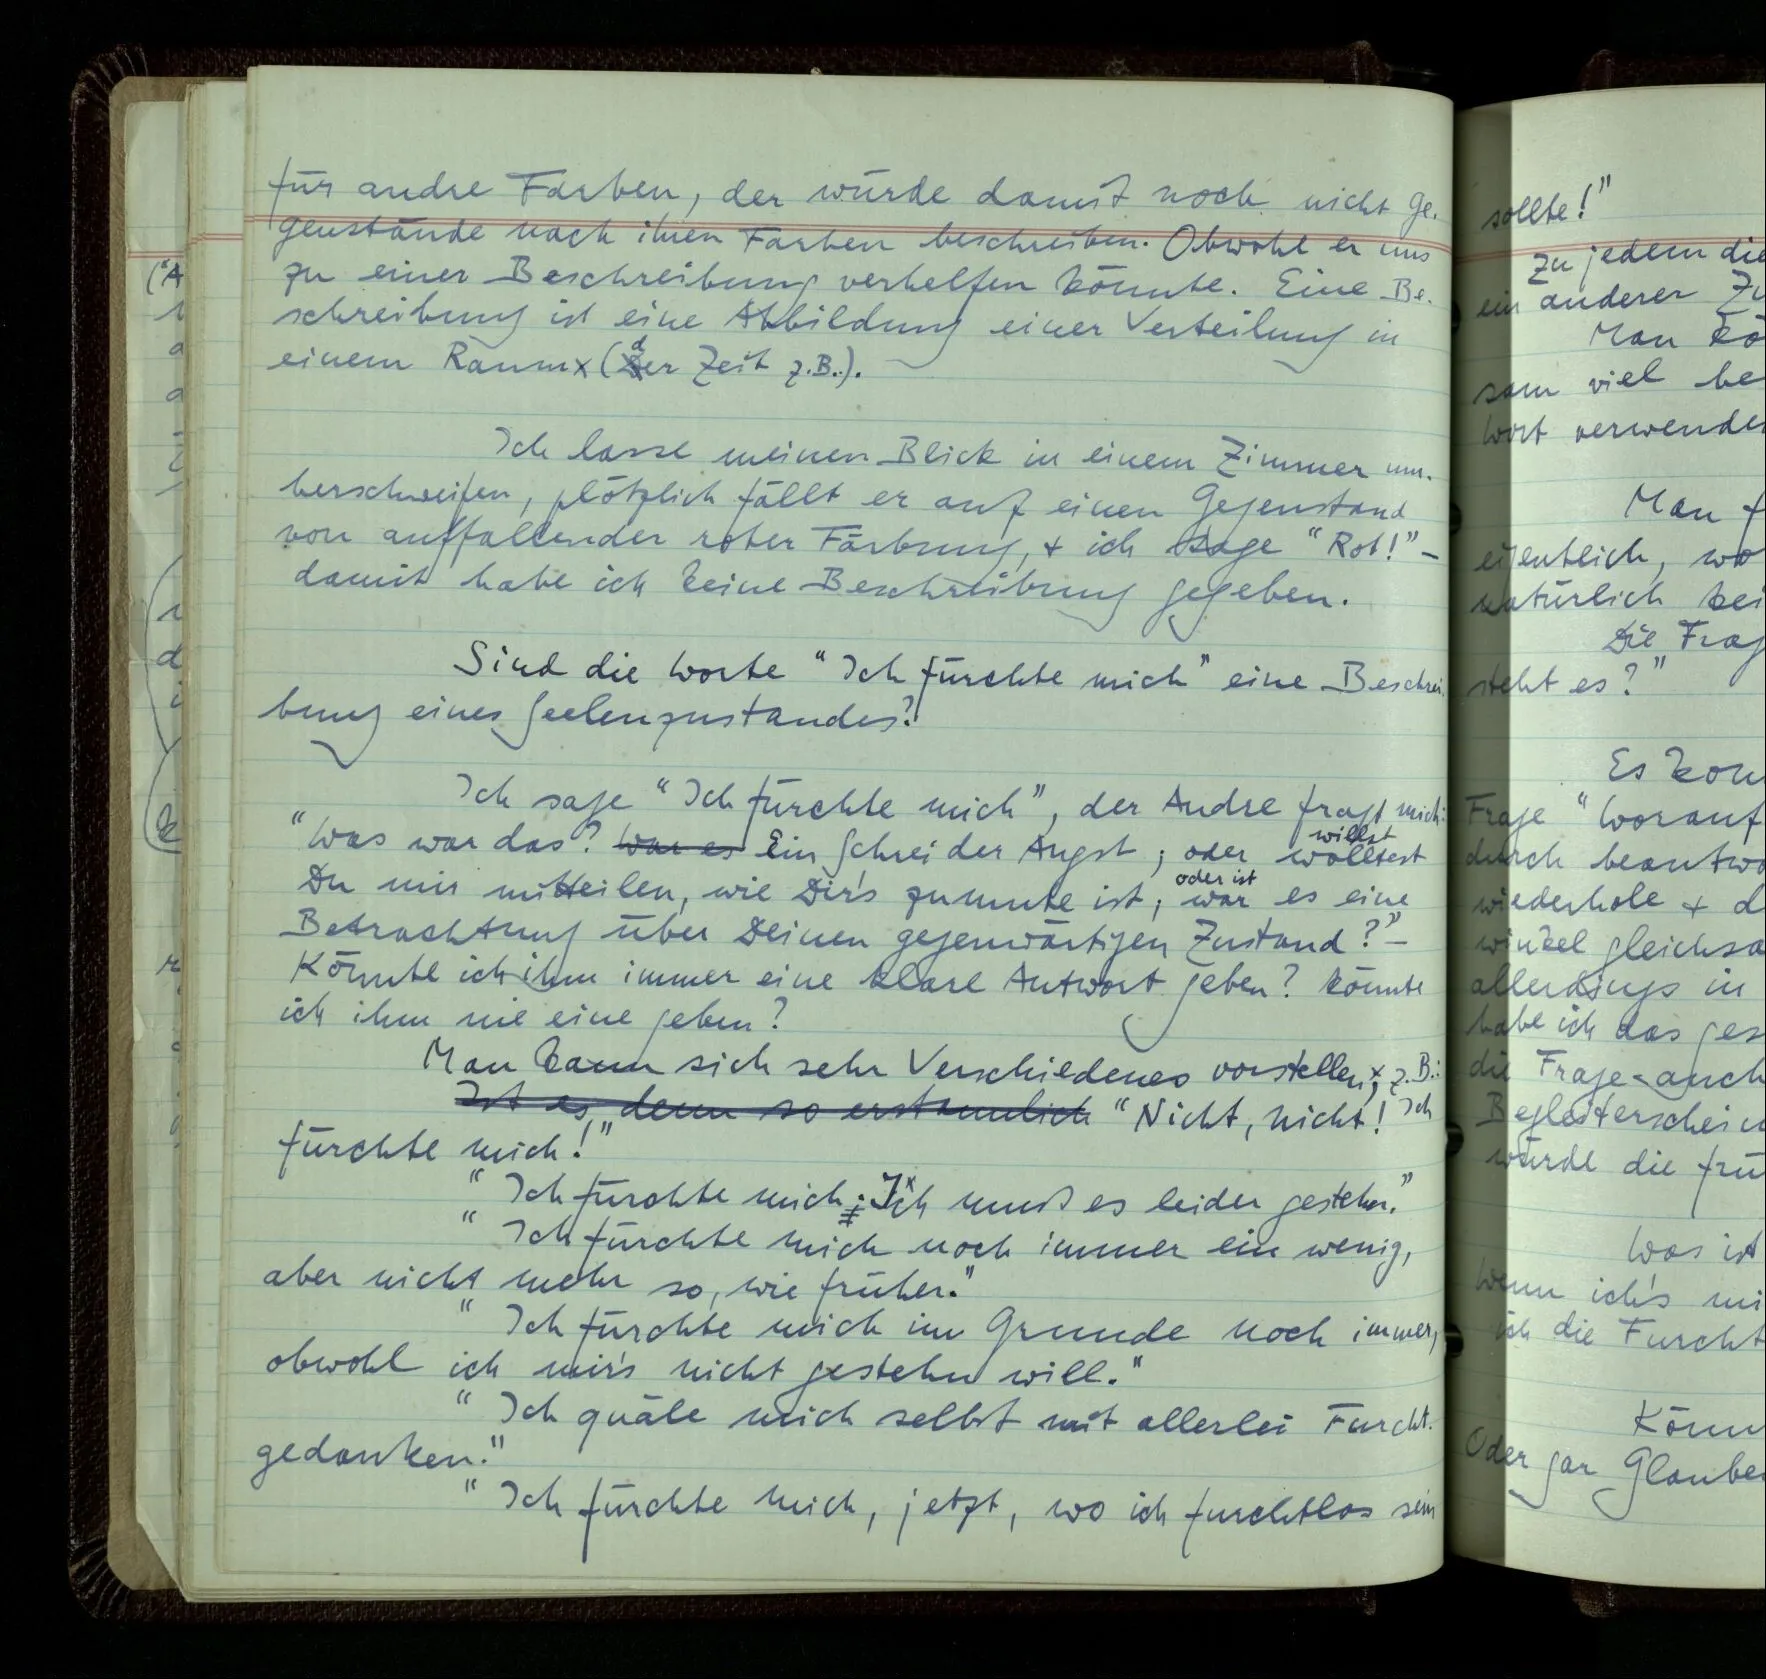 für andre Farben, der würde damit noch nicht Ge-
genstände nach ihren Farben beschreiben. Obwohl er uns
zu einer Beschreibung verhelfen könnte. Eine Be-
schreibung ist eine Abbildung einer Verteilung in
einem Raum (der Zeit z.B.).
Ich lasse meinen Blick in einem Zimmer um-
herschweifen, plötzlich fällt er auf einen Gegenstand
von auffallender roter Färbung, + ich sage "Rot!" –
damit habe ich keine Beschreibung gegeben.
Sind die Worte "Ich fürchte mich" eine Beschrei-
bung eines Seelenzustandes?
Ich sage "Ich fürchte mich", der Andre fragt mich:
"Was war das? War es Ein Schrei der Angst; oder wolltest
willst
Du mir mitteilen, wie Dir's zumute ist; war es eine
oder ist
Betrachtung über Deinen gegenwärtigen Zustand?" –
Könnte ich ihm immer eine klare Antwort geben? Könnte
ich ihm nie eine geben?
Man kann sich sehr Verschiedenes vorstellen, z.B.:
Ist es denn so erstaunlich "Nicht, nicht! Ich
fürchte mich!"
"Ich fürchte mich; Ich muß es leider gestehn."
"Ich fürchte mich noch immer ein wenig,
aber nicht mehr so, wie früher."
"Ich fürchte mich im Grunde noch immer,
obwohl ich mir's nicht gestehn will."
"Ich quäle mich selbst mit allerlei Furcht-
gedanken."
"Ich fürchte mich, jetzt, wo ich furchtlos sein
sollte!"
Zu jedem die
ein anderer
Man
sam viel be
Wort verwende
Man
eigentlich, wo
natürlich kei
Die Frag
steht es?"
Es kom
Frage "Worauf
durch beantwo
wiederhole + d
winkel gleichsa
allerdings in
habe ich das ges
die Frage auch
Begleiterschein
würde die frü
Was ist
Wenn ich's mi
ich die Furcht
Könn
Oder gar Glaube